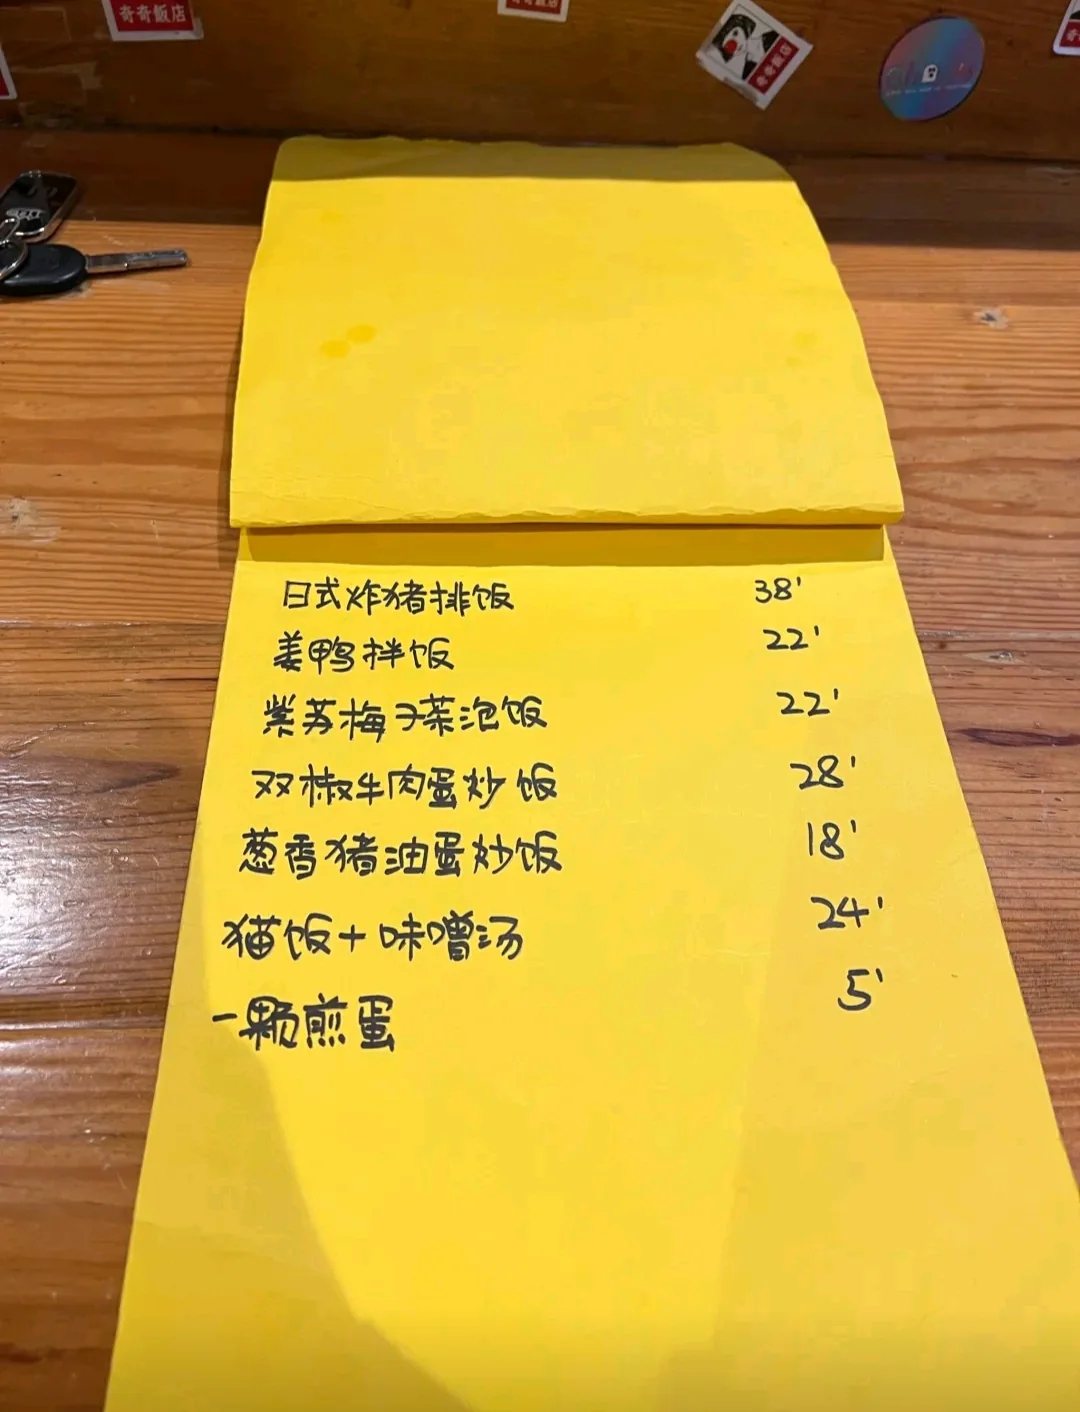 奇奇飯店
奇奇飯店
奇奇飯店
日式炸猪排饭 38'
姜鸭拌饭 22'
紫苏梅子茶泡饭 22'
双椒牛肉蛋炒饭 28'
葱香猪油蛋炒饭 18'
猫饭+味噌汤 24'
一颗煎蛋 5'